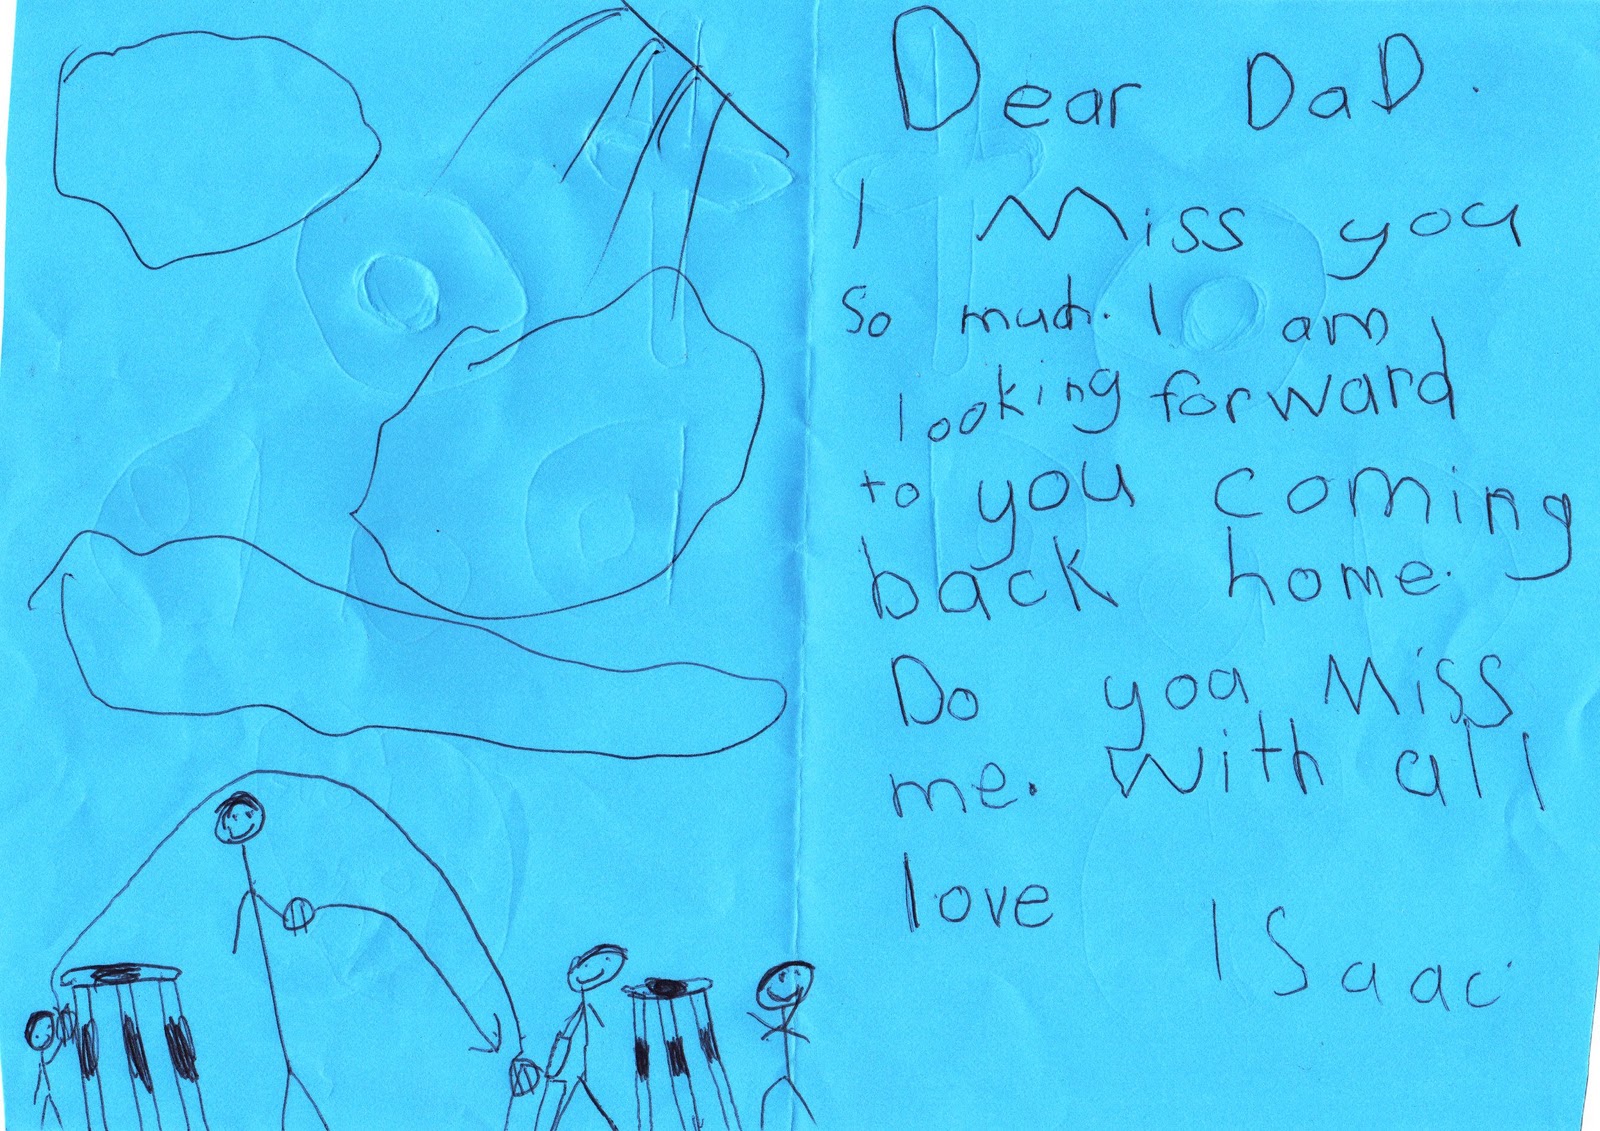 Dear DaD.
I Miss you
So much. I am
looking forward
to you coming
back home.
Do you Miss
me. With all
love
ISaac